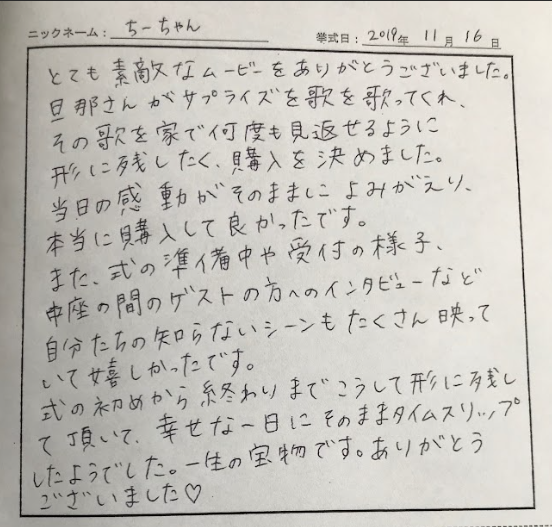 ニックネーム： ちーちゃん 挙式日： 2019年 11月 16日
とても素敵なムービーをありがとうございました。
旦那さんがサプライズを歌を歌ってくれ、
その歌を家で何度も見返せるように
形に残したく、購入を決めました。
当日の感動がそのままによみがえり、
本当に購入して良かったです。
また、式の準備中や受付の様子、
中座の間のゲストの方へのインタビューなど
自分たちの知らないシーンもたくさん映って
いて嬉しかったです。
式の初めから終わりまでこうして形に残し
て頂いて、幸せな一日にそのままタイムスリップ
したようでした。一生の宝物です。ありがとう
ございました♡